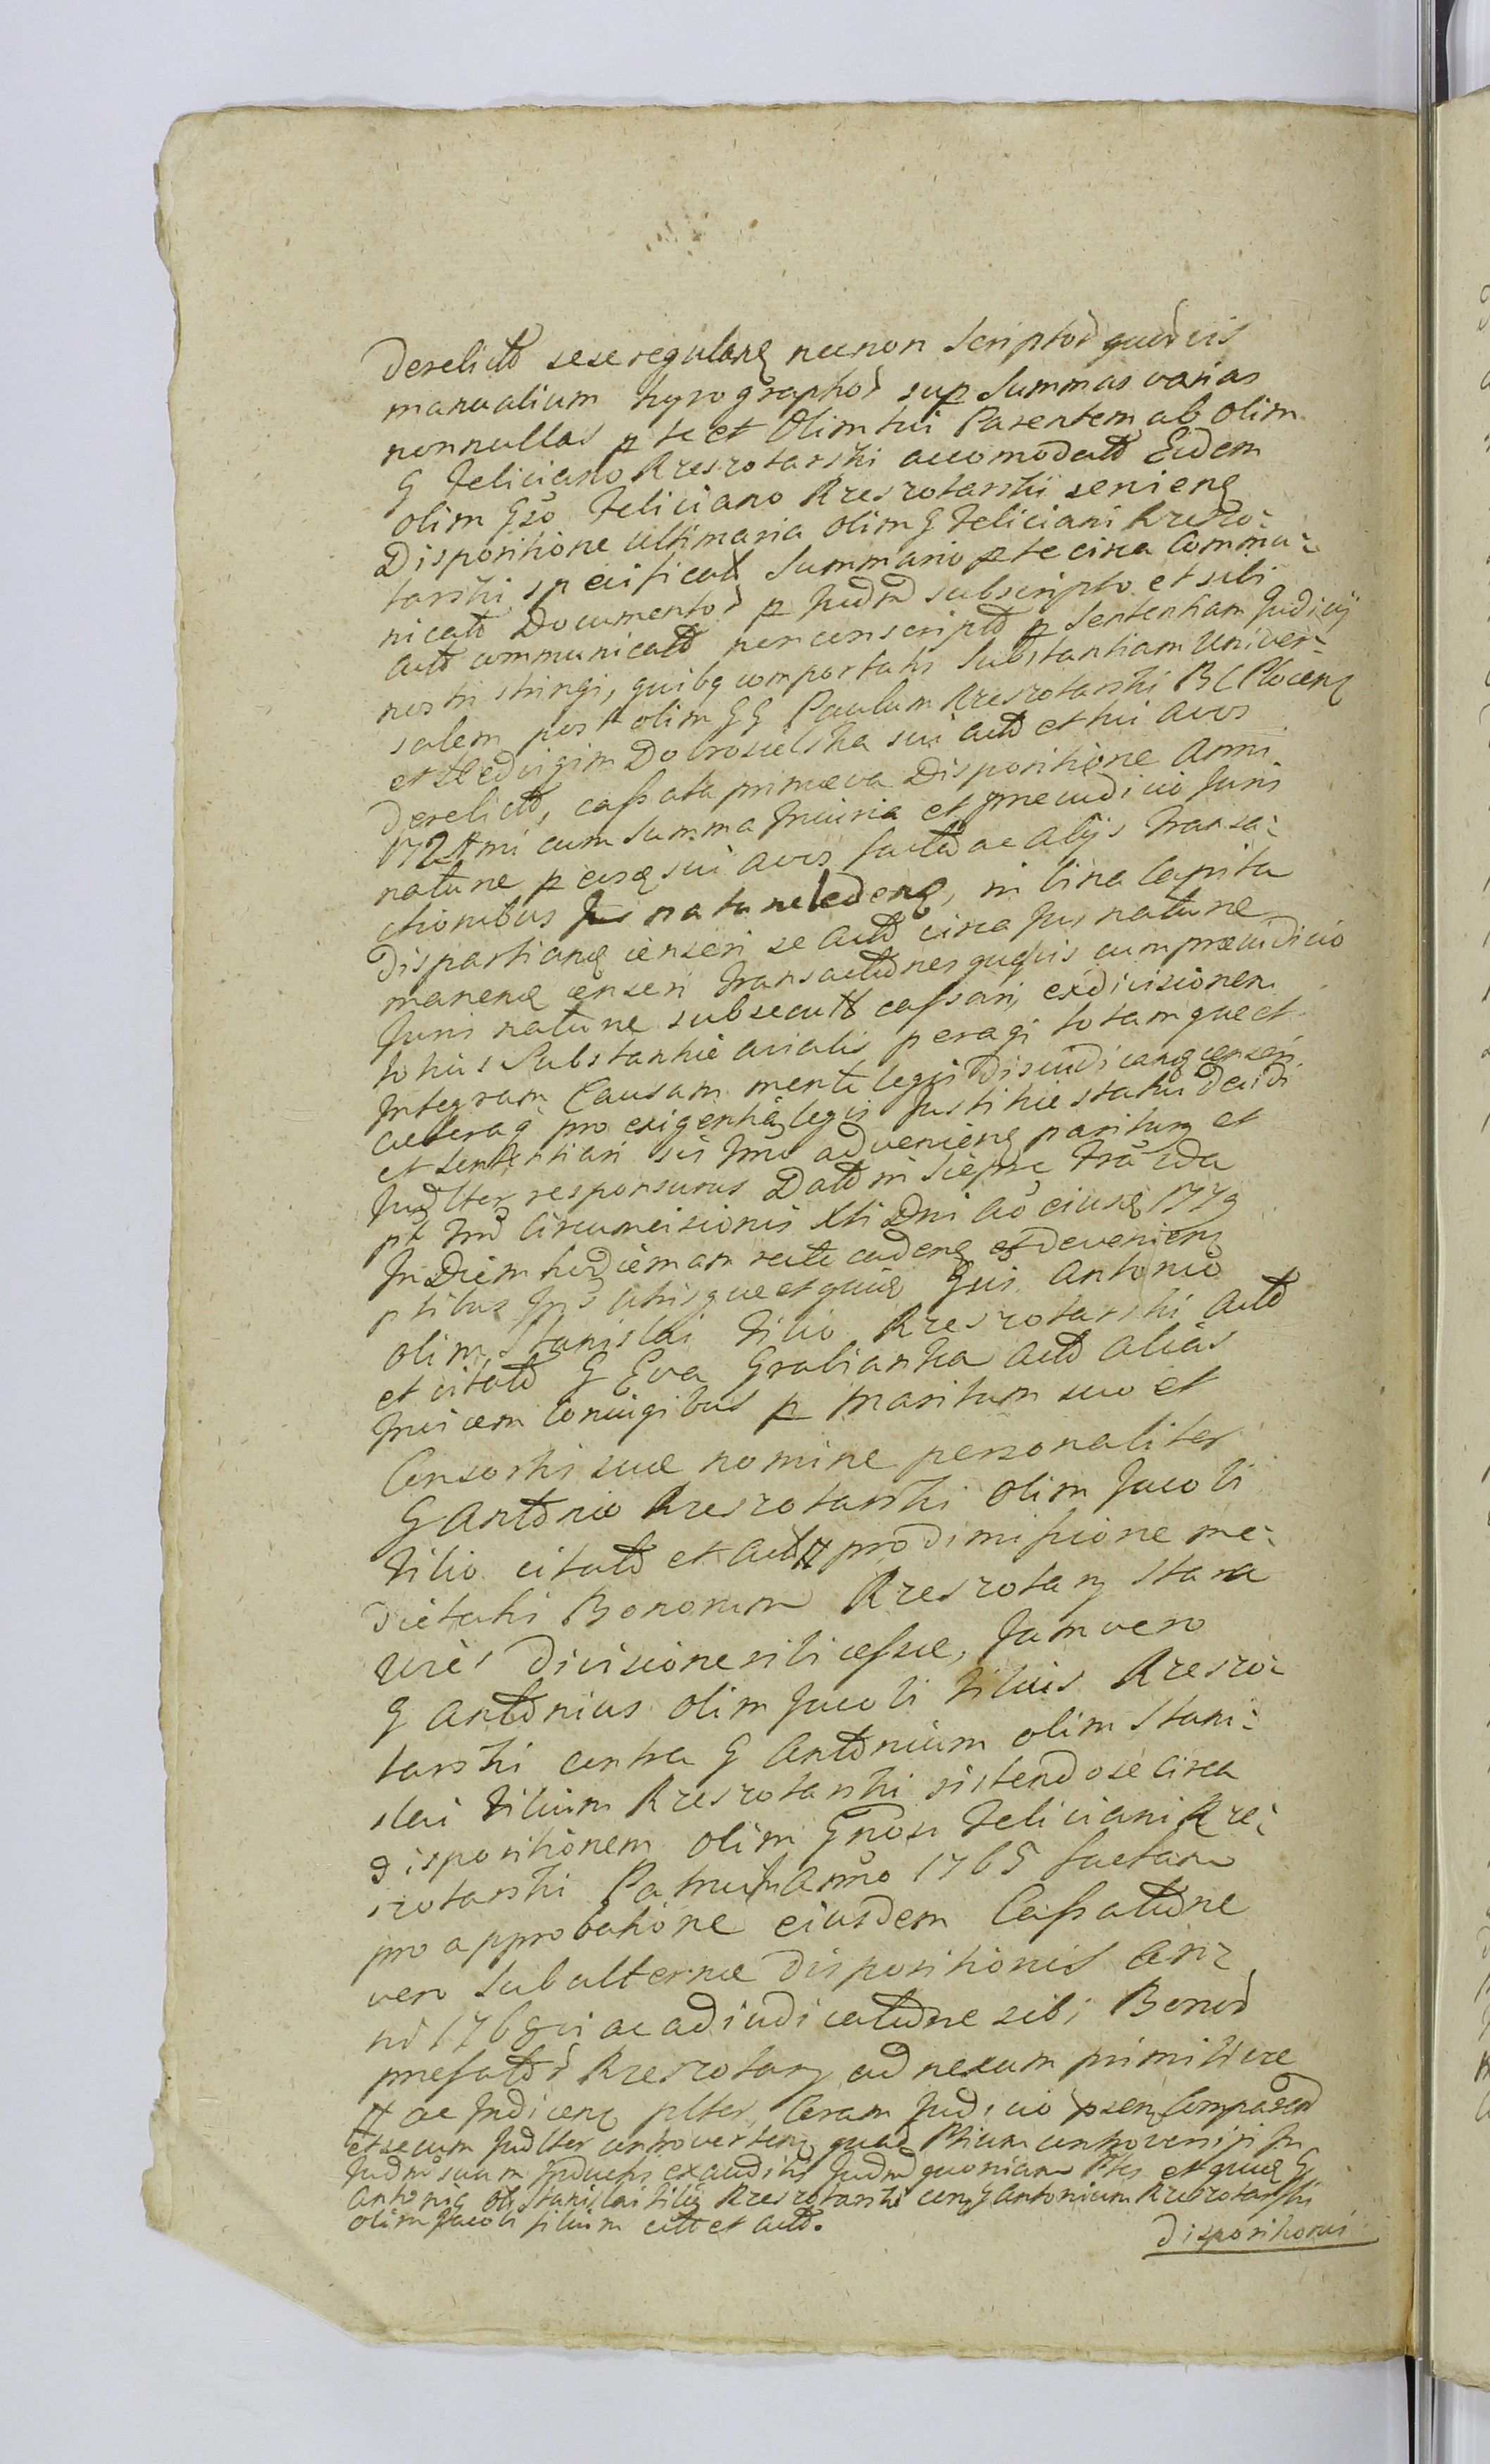 derelict sese regulanę necnon scriptor quorvis
manualium hyrographor sup Summas varias
nonnullas p te et Olim tui Parentem ab olim
G Feliciano Krezrotarski accomodat Eidem
olim Gso Feliciano Krezrotarski servienę
Dispositione ultimaria olim G Feliciani Krezro-
tarski spcificat Summario p te circa Commu-
nicat Documentor p Judm subscripto et sibi
act communicat per conscript p Sententiam Judicij
nostri stringi, quibq comportatis Substantiam Univer-
salem post olim GG Paulum Krezrotarski BC Plocenę
et Hedvigim Dobrosielska sui act et tui avos
derelict, cassata primæva Dispositione Anni
172 mi cum Summa Iniuria et præiudicio Juris
naturæ p eosą sui avos fact ac alijs Transa-
ctionibus Jus naturæ ledenę, in bina Capita
dispartianę censeri se act circa Jus naturæ
manenę censeri Transactiones quasvis cum præiudicio
Juris naturæ subsecut cassari, exdivisionem
totius Substantiæ avialis peragi totamque et
Integram Causam mente legis disiudicanę censeri
cæteraq pro exigentia legis Justitiæ statui decidi
et sententiari sis Tmo advenienę pariturq et
Judlter responsurus Dat in Sieprc Fra 2da
pt Fm Circumcisionis Xti Dni Ao eiusą 1779
In Diem hodiernam recte cadenę et devenienę
ptibus Ips utrisque et quiuę Gsis Antonio
olim Stanislai Filio Krezrotarski Act
et citat G Eva Grabianka Act alias
Invicem Coniugibus p Maritum suo et
Consortis suæ nomine personaliter
G Antonio Krezrotarski olim Jacobi
Filio citat et Act # pro dimissione me-
dietatis Bonorum Krezrotarz Stara
Wieś divisione sibi cessæ, Jam vero
G Antonius olim Jacobi Filius Krezro-
tarski contra G Antonium olim Stani-
slai Filium Krezrotarski sistendose circa
dispositionem olim Gnosi Feliciani Kre-
zrotarski Patrui Anno 1765 factam
pro approbatione eiusdem Cassatione
vero Subalternæ dispositionis An-
ni 1768vi ac adiudicatione sibi Bonor
præfator Krezrotarz ad nexum primitive
# ac Indicenę plter Coram Judicio psenę Comparend
et secum Judlter controvertenę quaą Ptium controversijs In
Judm suum Inductis exauditis Judm quoniam Pts et quiuę G
Antonię ol Stanislai filię Krezrotarski conę G Antonium Krezrotarski
olim Jacobi filium citt et act.
dispositionis